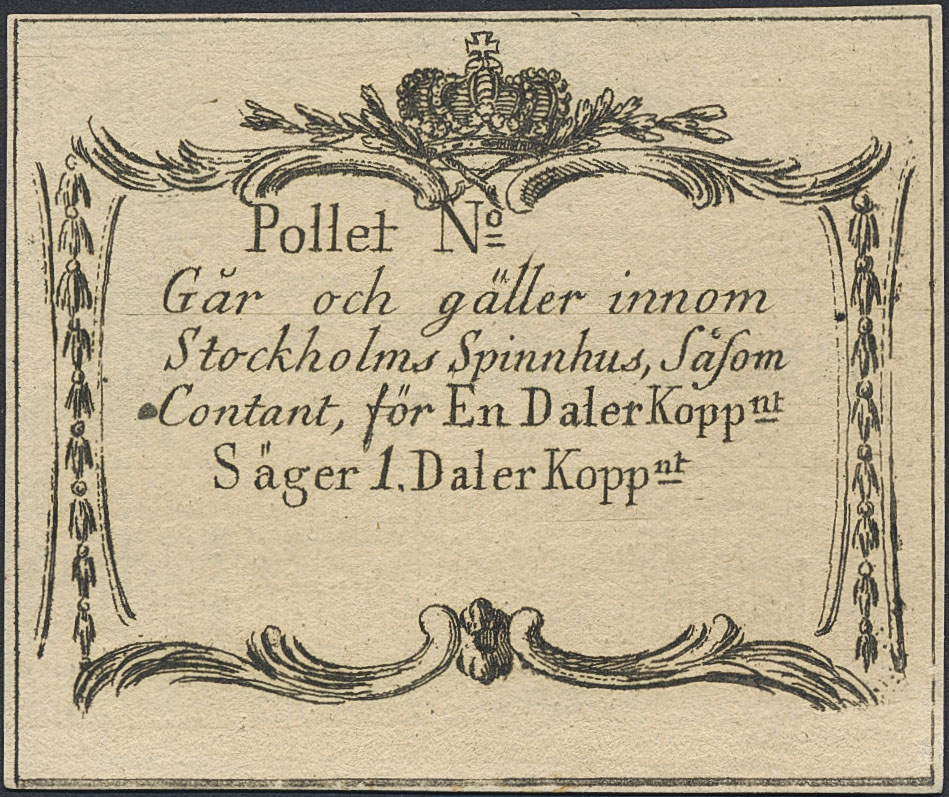 Pollet Nº
Går och gäller innom
Stockholms Spinnhus, Såſom
Contant, för En Daler Koppnt
Säger 1. Daler Koppnt